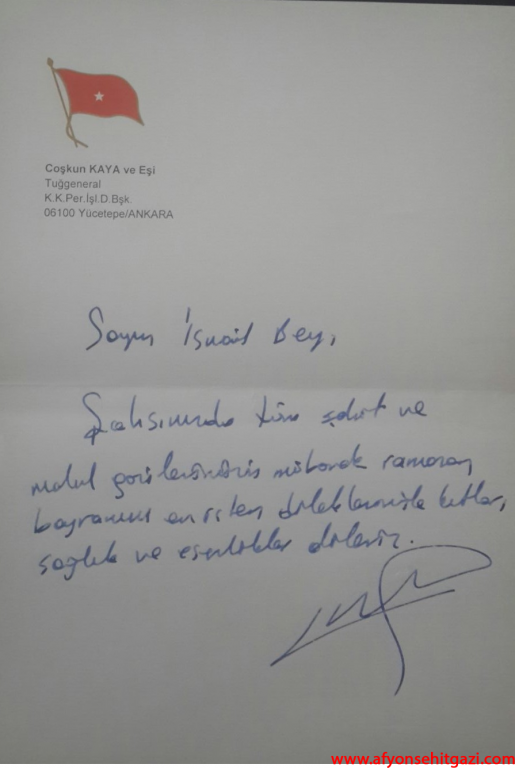 Coşkun KAYA ve Eşi
Tuğgeneral
K.K.Per.İşl.D.Bşk.
06100 Yücetepe/ANKARA
Sayın İsmail Bey,
Şahsınızda tüm şehit ve
malul gazilerimizin mübarek ramazan
bayramını en içten dileklerimizle kutlar,
sağlık ve esenlikler dileriz.
www.afyonsehitgazi.com